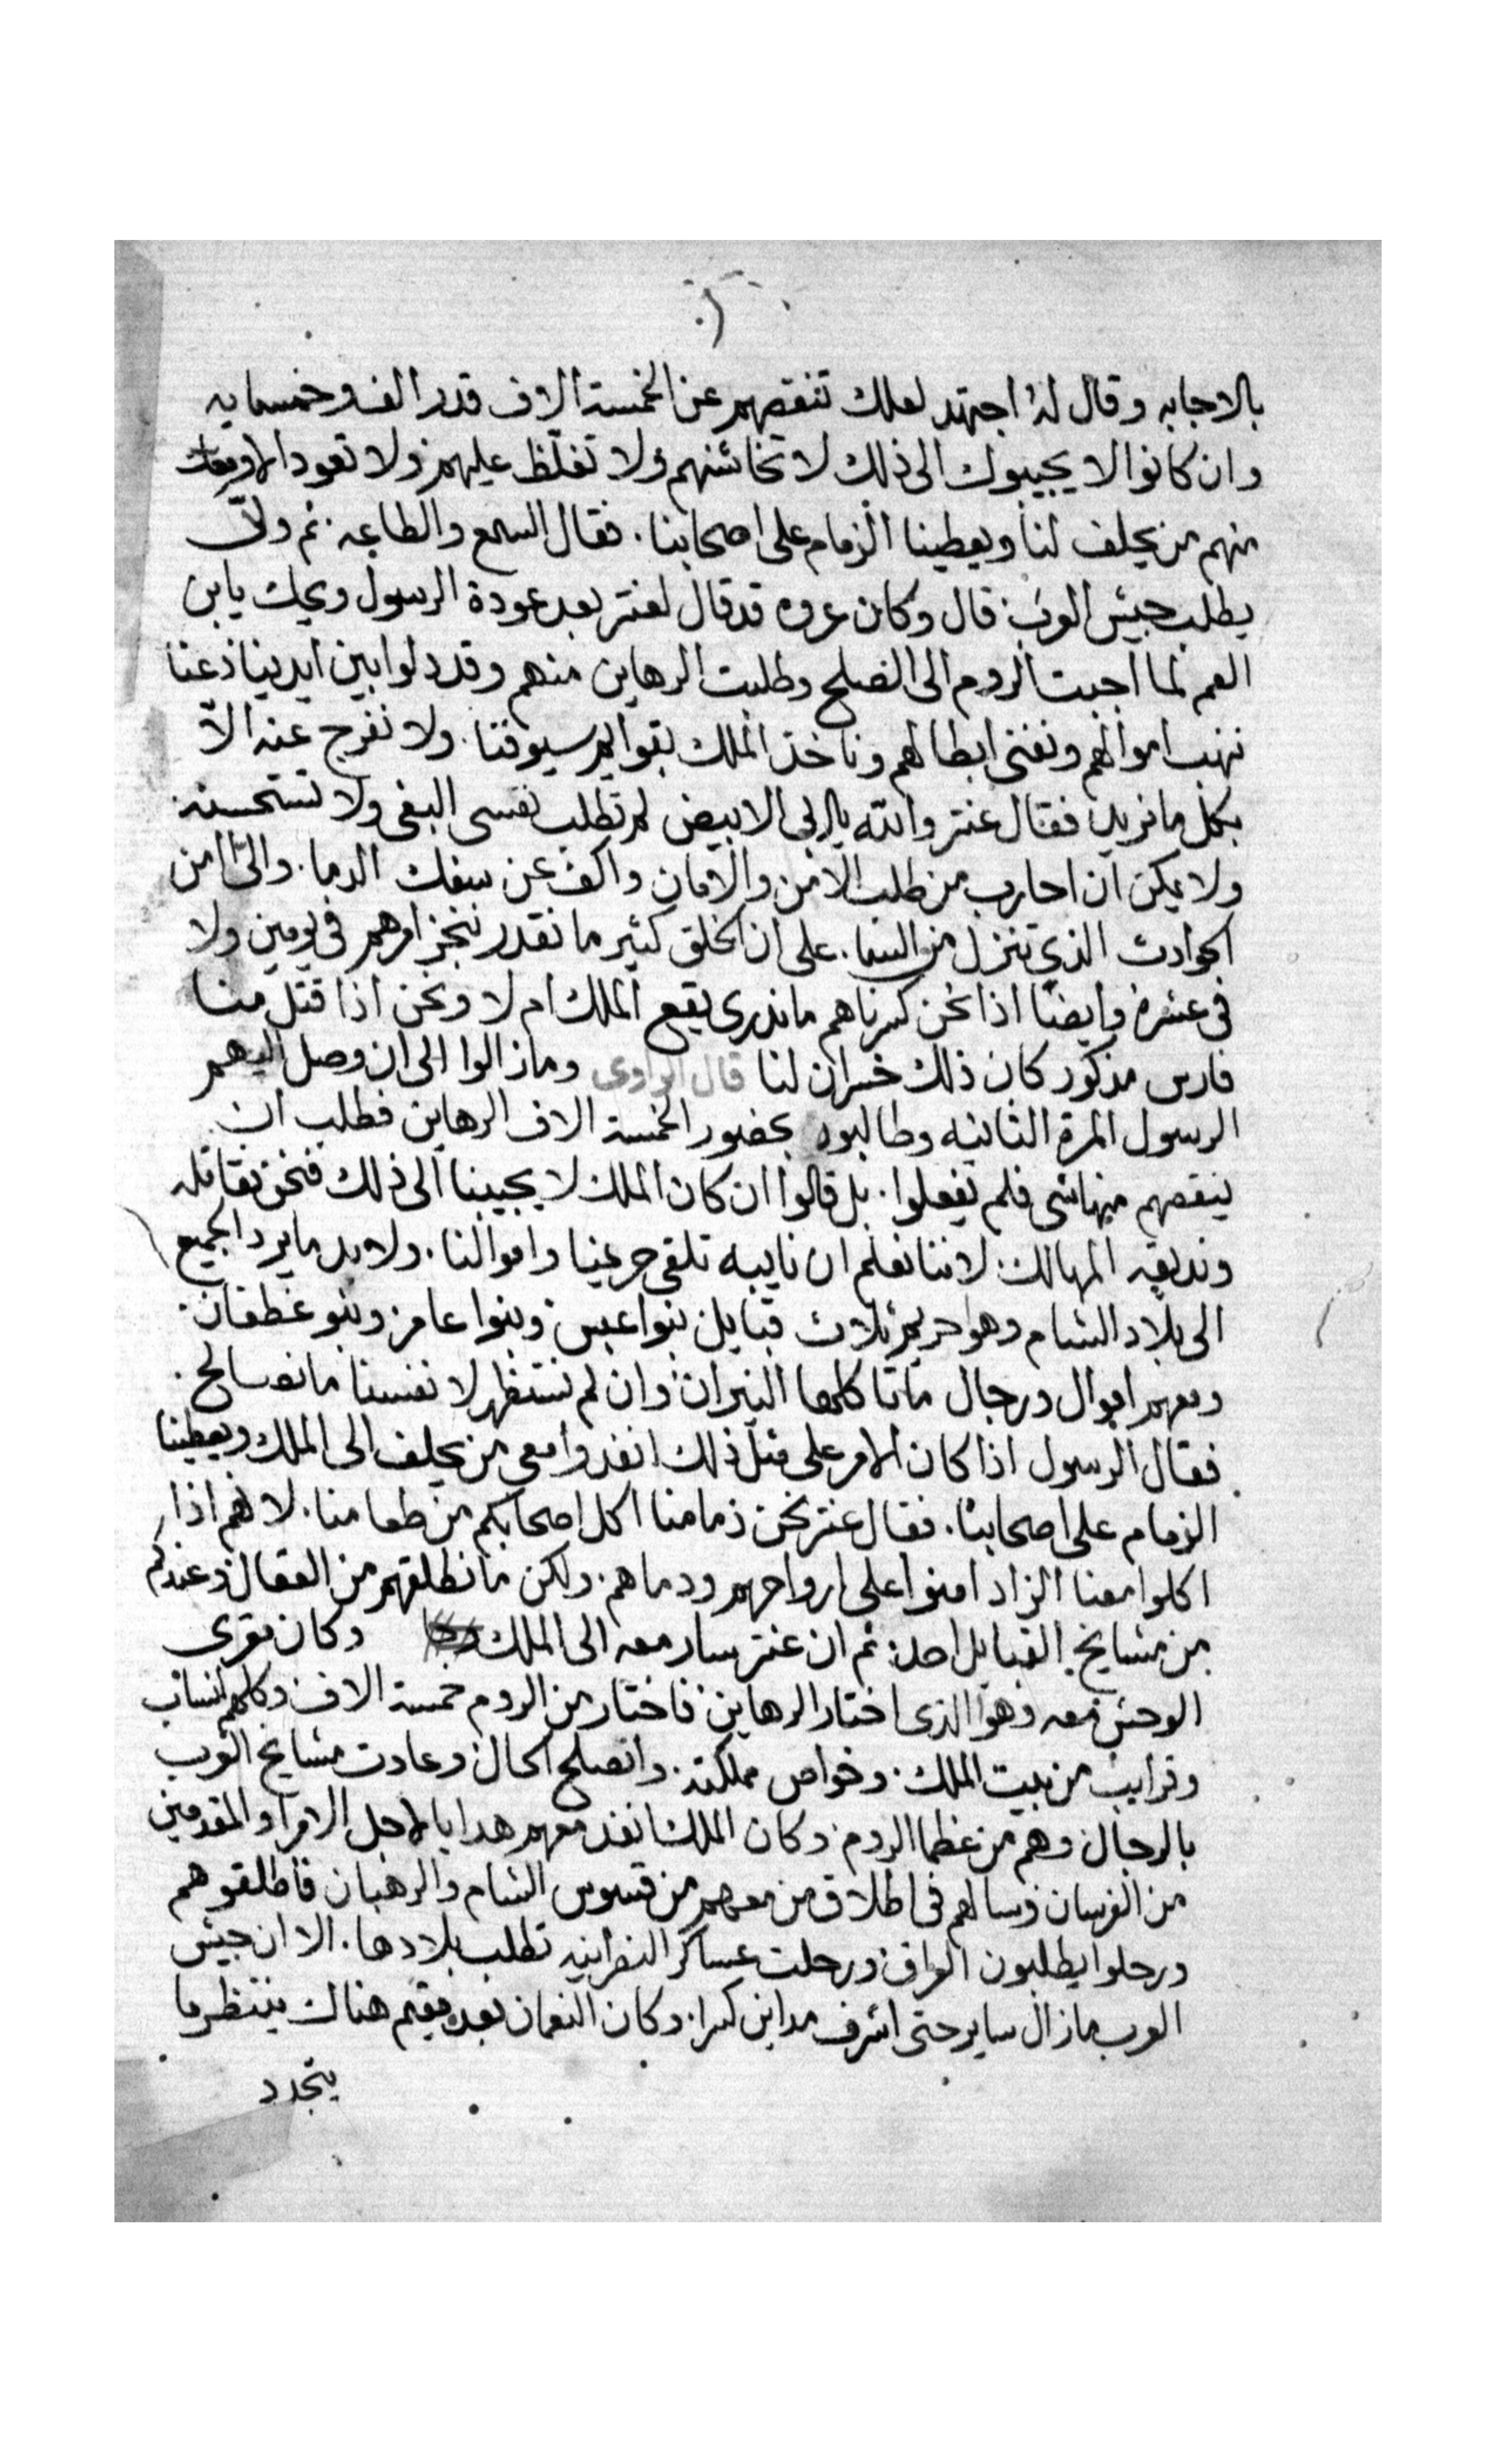 بالاجابه وقال له اجتهد لعلك تنقصهم عن الخمسة الاف قدر الف وخمسمايه
وان كانوا لا يجيبوك الى ذلك لا تخاشنهم ولا تغلظ عليهم ولا تعود الا ومعك
منهم من يحلف لنا ويعطينا الزمام على اصحابنا. فقال السمع والطاعه. ثم ولّى
يطلب جيش العرب قال وكان عروه قد قال لعنتر بعد عودة الرسول ويحك يابن
العم لما اجبت الروم الى الصلح وطلبت الرهاين منهم وقد دلوا بين ايدينا دعنا
ننهب اموالهم ونفنى ابطالهم وناخذ الملك بقوايم سيوفنا. ولا نفرج عنه الاّ
بكل ما نريد فقال عنتر والله يا ابى الابيض لم تطلب نفسى البغى ولا تستحسنه
ولا يمكن ان احارب من طلب الامن والامان واكف عن سفك الدما. والىّ امن
الحوادث الذي تنزل من السما. على ان الخلق كثير ما نقدر ننجز امرهم فى يومين ولا
فى عشره وايضًا اذا نحن كسرناهم ما ندرى يقع الملك ام لا ونحن اذا قتل منا
فارس مذكور كان ذلك خسران لنا قال الراوى ومازالوا الى ان وصل اليهم
الرسول المرة الثانيه وطالبوه بحضور الخمسة الاف الرهاين فطلب ان
ينقصهم منها شى فلم يفعلوا. بل قالوا ان كان الملك لا يجيبنا الى ذلك فنحن نقاتله
ونديقه المهالك. لاننا نعلم ان نايبه تلقى حريمنا واموالنا. ولابد ما يرد الجميع
الى بلاد الشام وهو حريم ثلاث قبايل بنوا عبس وبنوا عامر وبنو غطفان.
ومعهم اموال ورجال ما تاكلها النيران وان لم نستظهر لانفسنا ما نصالح.
فقال الرسول اذا كان الامر على مثل ذلك انفدوا معى من يحلف الى الملك ويعطينا
الزمام على اصحابنا. فقال عنتر نحن ذمامنا اكل اصحابكم من طعامنا. لانهم اذا
اكلوا معنا الزاد امنوا على ارواحهم ودماهم. ولكن ما نطلقهم من العقال وعندكم
من مشايخ القبايل احد. ثم ان عنتر سار معه الى الملك وكان مقرى
الوحش معه وهو الذى اختار الرهاين فاختار من الروم خمسة الاف وكلهم انساب
وقرايب من بيت الملك. وخواص مملكته. وانصلح الحال وعادت مشايخ العرب
بالرجال وهم من عظما الروم. وكان الملك انفد معهم هدايا لاجل الامرا والمقدمين
من الفرسان وسالهم فى اطلاق من معهم من قسوس الشام والرهبان فاطلقوهم
ورحلوا يطلبون العراق ورحلت عساكر النصرانيه تطلب بلادها. الا ان جيش
العرب مازال ساير حتى اشرف مداين كسرا. وكان النعمان بعده مقيم هناك ينتظر ما
يتجدد